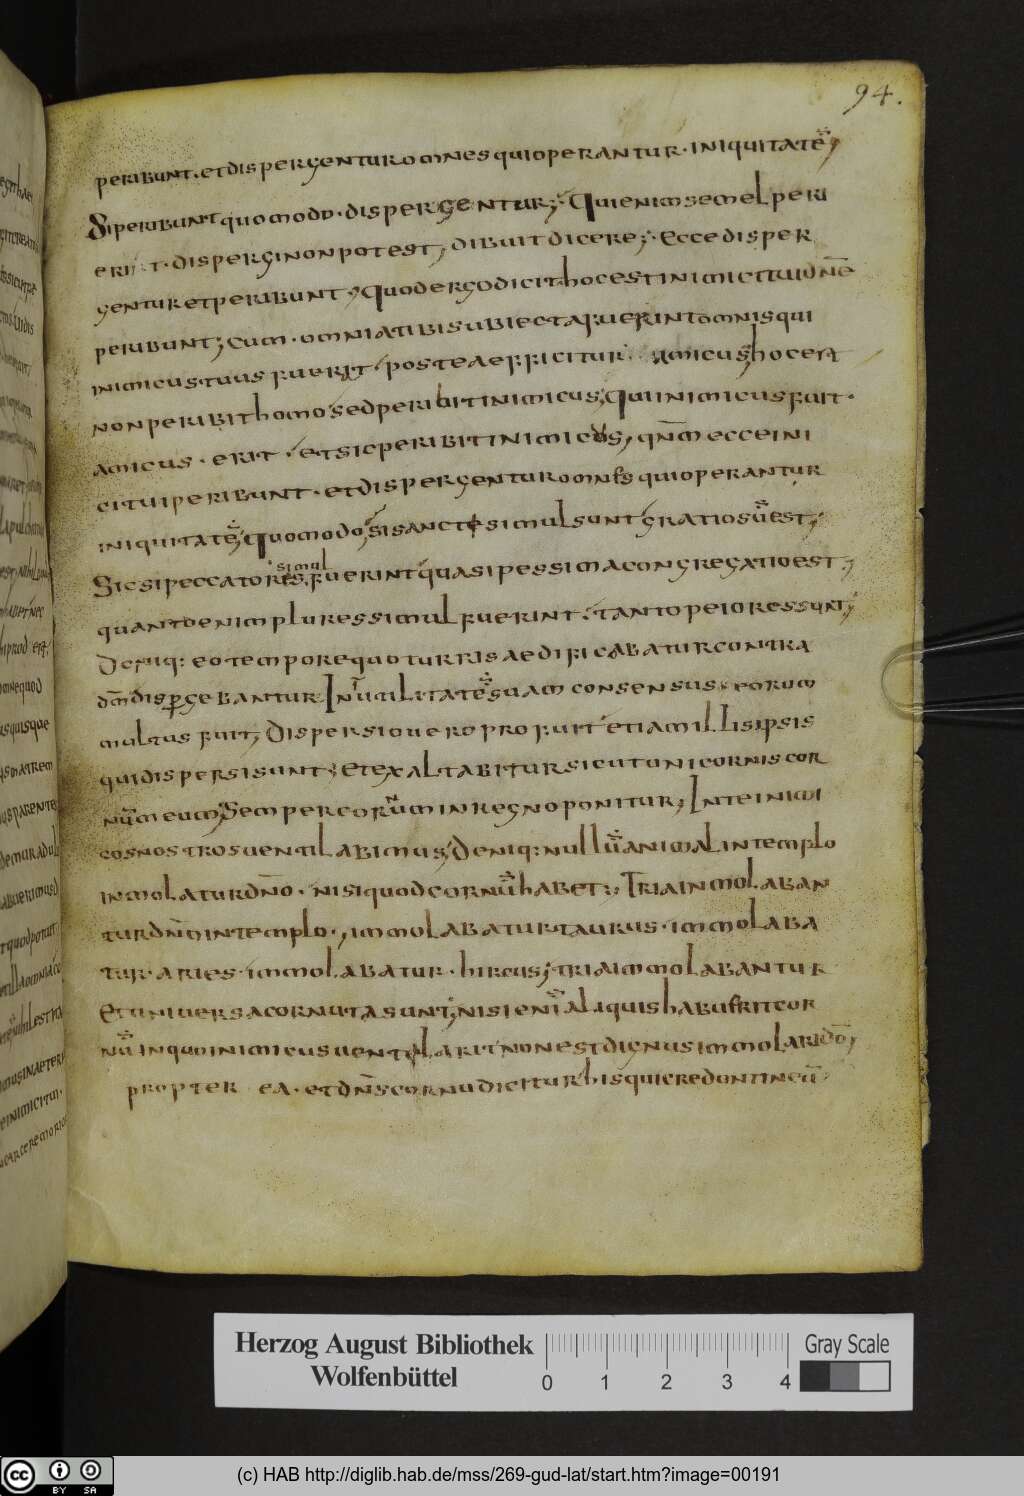 94.
peribunt. et dispergentur omnes qui operantur. iniquitatē;
Si peribunt quomodo. dispergentur; Qui enim semel peri
dispergi non potest; dibuit dicere; Ecce disper
gentur et peribunt; Quod ergo dicit hoc est inimici tui dn̄e
peribunt; cum. omnia tibi subiecta fuerint omnis qui
inimicus tuus fuerit. postea efficitur amicus hoc est
non peribit homo sed peribit inimicus; Qui inimicus fuit.
amicus. erit. et sic peribit inimicus, qn̄m ecce ini
ci tui peribunt. et dispergentur omnes qui operantur
iniquitatē; Quomodo; si sancti simul sunt gratiosū est;
simul
Sic si peccatores fuerint quasi pessima congregatio est;
quanto enim plures simul fuerint; tanto peiores sunt;
Deniq: eo tempore quo turris aedificabatur contra
dm̄ dispergebantur In utilitatē suam consensus eorum
multus fuit; Dispersio uero profuit etiam illis ipsis
qui dispersi sunt; et exaltabitur sicut unicornis cor
nūm eum; Semper cornum in regno ponitur; In te inimi
cos nostros uentilabimus; Deniq: nullū animal in templo
inmolatur dn̄o. nisi quod cornū habet; Tria inmolaban
tur dn̄o in templo., immolabatur taurus. immolaba
tur. aries. immolabatur. hircus; tria immolabantur
Et uniuersa cornuta sunt; nisi enī aliquis habuerit cor
nū in quo inimicus uentelarit non est dignus immolari dō;
propter ea. et dn̄s cornu dicitur his qui credont in eū
Herzog August Bibliothek
Wolfenbüttel
0 1 2 3 4
Gray Scale
cc BY SA
(c) HAB http://diglib.hab.de/mss/269-gud-lat/start.htm?image=00191